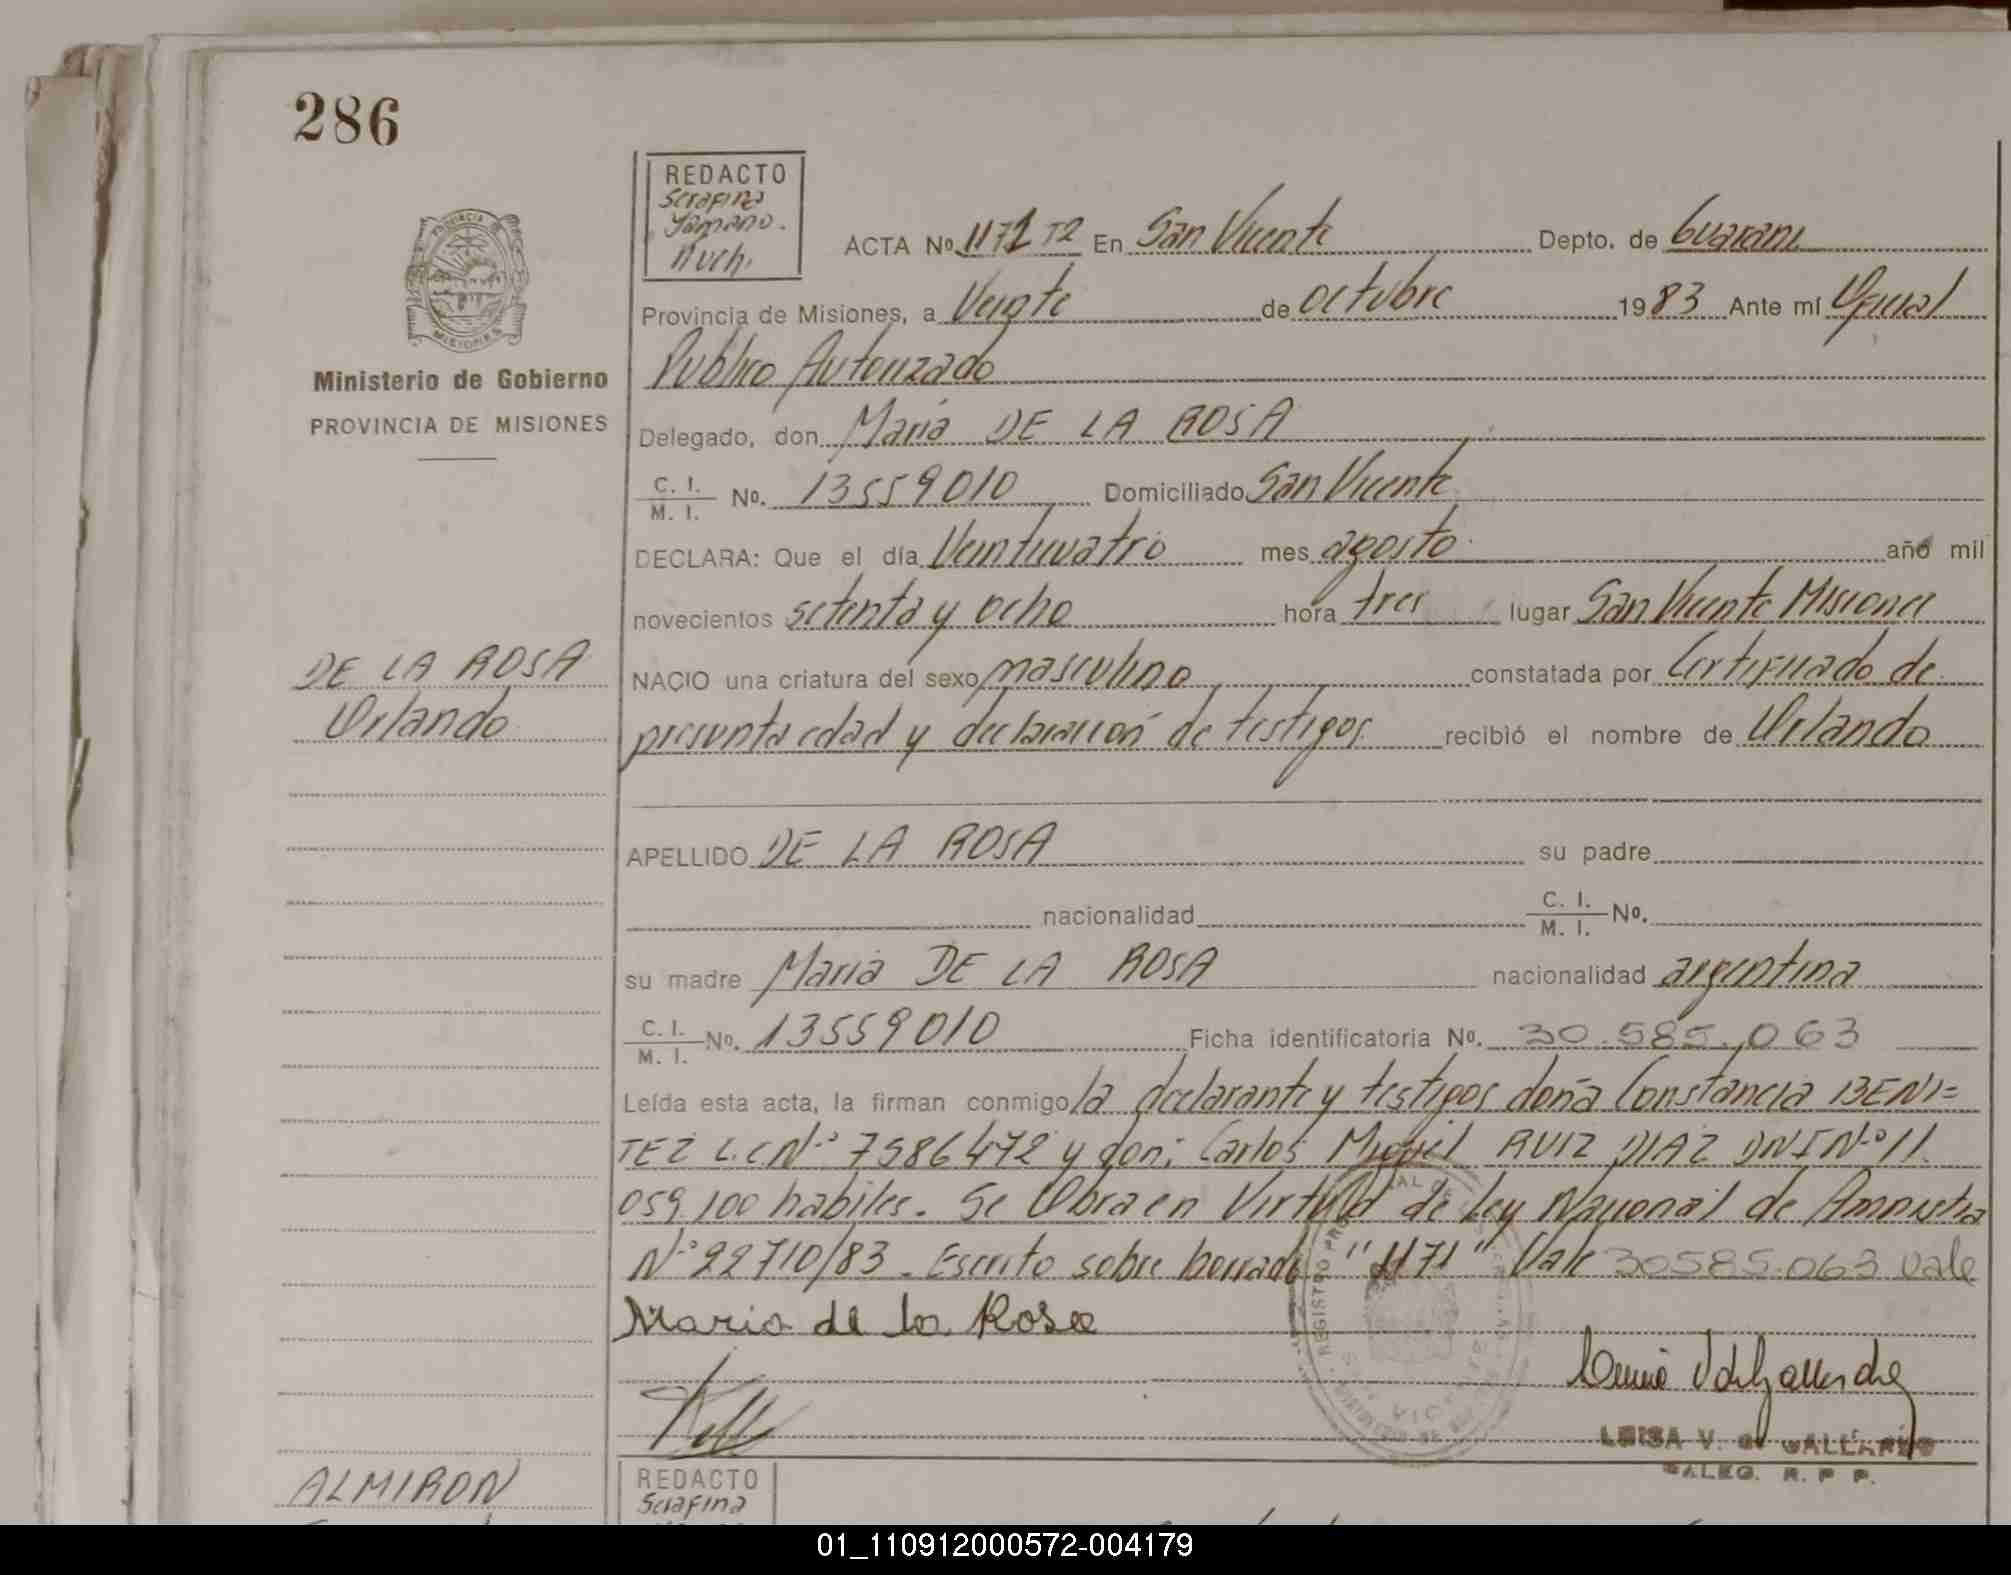 286
REDACTO
Serafina
Yamano.
Nuch.
ACTA No. 1171 T2 En San Vicente Depto. de Guarani
Provincia de Misiones, a Veinte de octubre 1983 Ante mí Oficial
Publico Autorizado
Ministerio de Gobierno
PROVINCIA DE MISIONES
Delegado, don Maria DE LA ROSA
C. I. / M. I. No. 13559010 Domiciliado San Vicente
DECLARA: Que el día Veinticuatro mes agosto año mil
novecientos setenta y ocho hora tres lugar San Vicente Misiones
DE LA ROSA
Orlando
NACIO una criatura del sexo masculino constatada por Certificado de
presunta edad y declaración de testigos recibió el nombre de Orlando
APELLIDO DE LA ROSA su padre
nacionalidad C. I. / M. I. No.
su madre Maria DE LA ROSA nacionalidad argentina
C. I. / M. I. No. 13559010 Ficha identificatoria No. 30.585.063
Leída esta acta, la firman conmigo la declarante y testigos doña Constancia BENI=
TEZ L.C N.º 7586472 y don: Carlos Miguel RUIZ DIAZ DNI N.º 11.
059.100 habiles. Se Obra en Virtud de Ley Nacional de Amnistia
N.º 22710/83. Escrito sobre borrado "1171" Vale 30585.063 Vale
Maria de la Rosa
LUISA V. G. GALLARDO
DALEG. R. P. P.
ALMIRON
REDACTO
Serafina
01_110912000572-004179